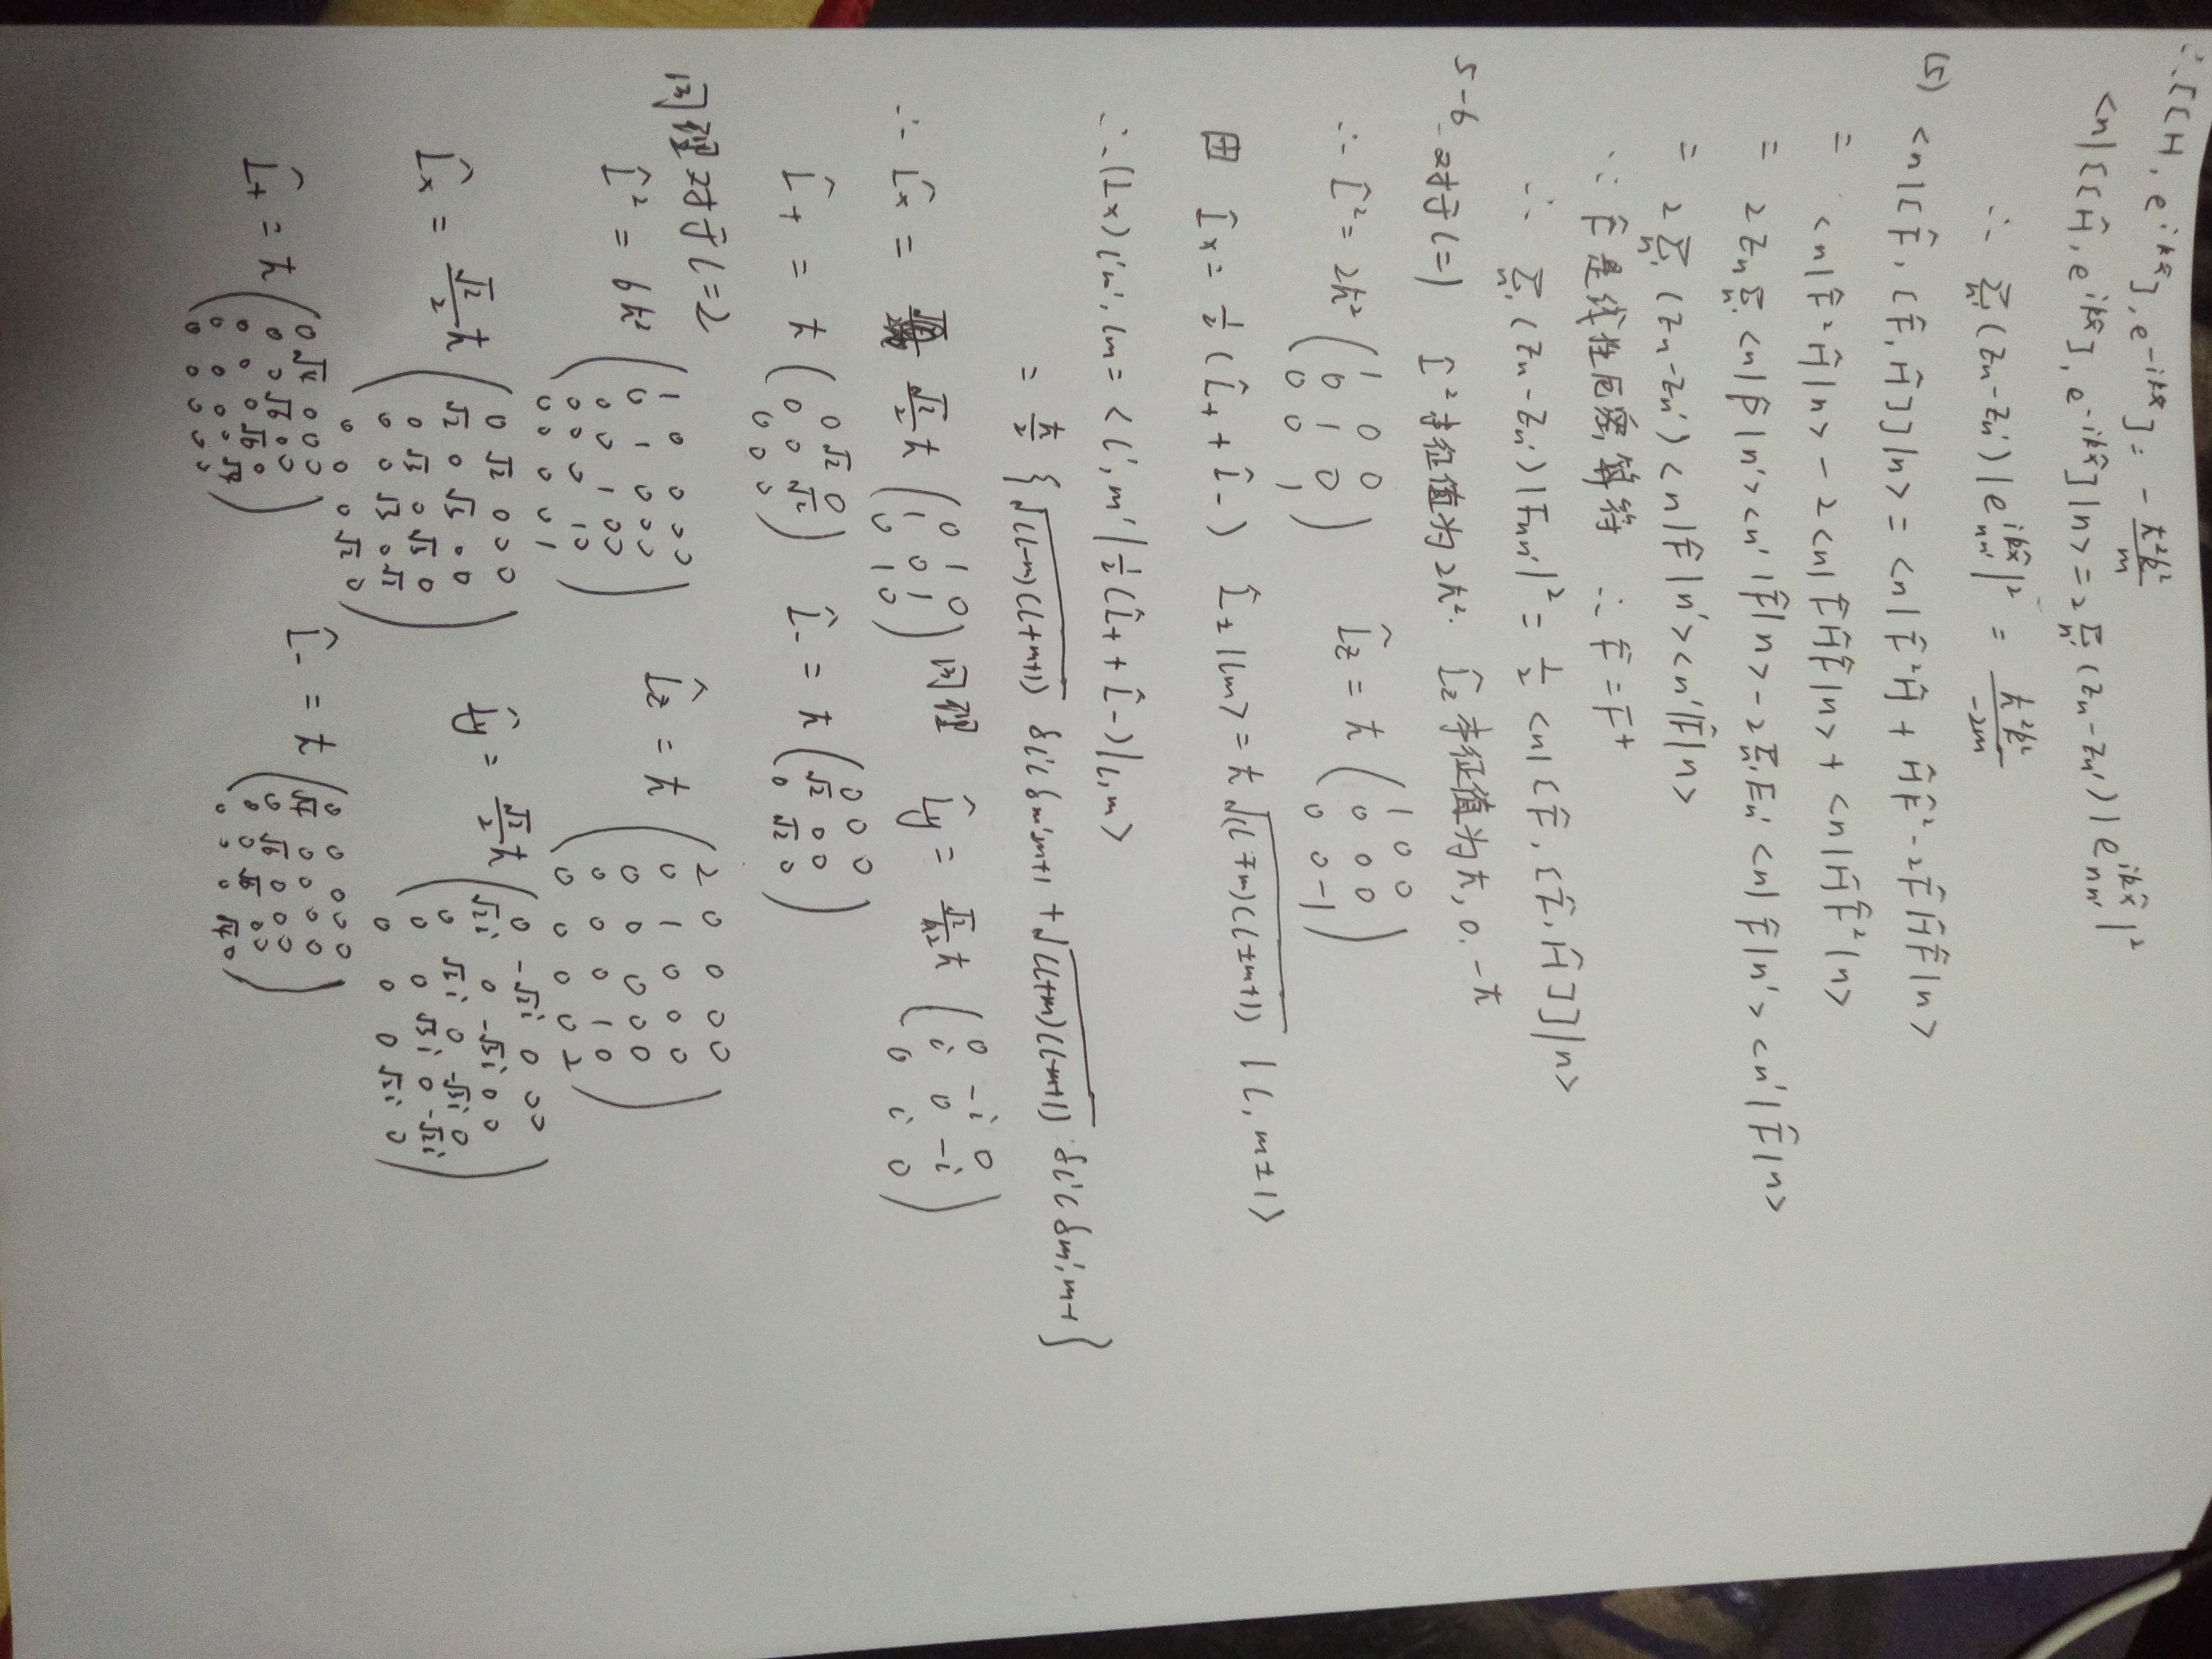 ∴ [[H, e^{ikx̂}], e^{-ikx̂}] = -ħ²k²/m
<n|[[Ĥ, e^{ikx̂}], e^{-ikx̂}]|n> = 2Σ_{n'}(En-En')|e^{ikx̂}_{nn'}|²
∴ Σ_{n'}(En-En')|e^{ikx̂}_{nn'}|² = ħ²k²/-2m
(5) <n|[F̂, [F̂, Ĥ]]|n> = <n|F̂²Ĥ + ĤF̂² - 2F̂ĤF̂|n>
= <n|F̂²Ĥ|n> - 2<n|F̂ĤF̂|n> + <n|ĤF̂²|n>
= 2En Σ_{n'}<n|F̂|n'><n'|F̂|n> - 2Σ_{n'}En'<n|F̂|n'><n'|F̂|n>
= 2Σ_{n'}(En-En')<n|F̂|n'><n'|F̂|n>
∵ F̂是线性厄密算符 ∴ F̂=F̂⁺
∴ Σ_{n'}(En-En')|Fnn'|² = 1/2 <n|[F̂, [F̂, Ĥ]]|n>
5-6 对于l=1 L̂²本征值为2ħ². L̂z本征值为ħ, 0, -ħ
∴ L̂² = 2ħ² (1 0 0; 0 1 0; 0 0 1) L̂z = ħ (1 0 0; 0 0 0; 0 0 -1)
由 L̂x = 1/2 (L̂+ + L̂-) L̂±|lm> = ħ√(l∓m)(l±m+1) |l, m±1>
∴ (Lx)l'm', lm = <l', m'|1/2(L̂+ + L̂-)|l, m>
= ħ/2 {√(l-m)(l+m+1) δl'l δm'm+1 + √(l+m)(l-m+1) δl'l δm'm-1}
∴ L̂x = √2/2 ħ (0 1 0; 1 0 1; 0 1 0) 同理 L̂y = √2/2 ħ (0 -i 0; i 0 -i; 0 i 0)
L̂+ = ħ (0 √2 0; 0 0 √2; 0 0 0) L̂- = ħ (0 0 0; √2 0 0; 0 √2 0)
同理对于l=2
L̂² = 6ħ² (1 0 0 0 0; 0 1 0 0 0; 0 0 1 0 0; 0 0 0 1 0; 0 0 0 0 1) L̂z = ħ (2 0 0 0 0; 0 1 0 0 0; 0 0 0 0 0; 0 0 0 1 0; 0 0 0 0 2)
L̂x = √2/2 ħ (0 √2 0 0 0; √2 0 √3 0 0; 0 √3 0 √3 0; 0 0 √3 0 √2; 0 0 0 √2 0) L̂y = √2/2 ħ (0 -√2i 0 0 0; √2i 0 -√3i 0 0; 0 √3i 0 -√3i 0; 0 0 √3i 0 -√2i; 0 0 0 √2i 0)
L̂+ = ħ (0 √4 0 0 0; 0 0 √6 0 0; 0 0 0 √6 0; 0 0 0 0 √4; 0 0 0 0 0) L̂- = ħ (0 0 0 0 0; √4 0 0 0 0; 0 √6 0 0 0; 0 0 √6 0 0; 0 0 0 √4 0)